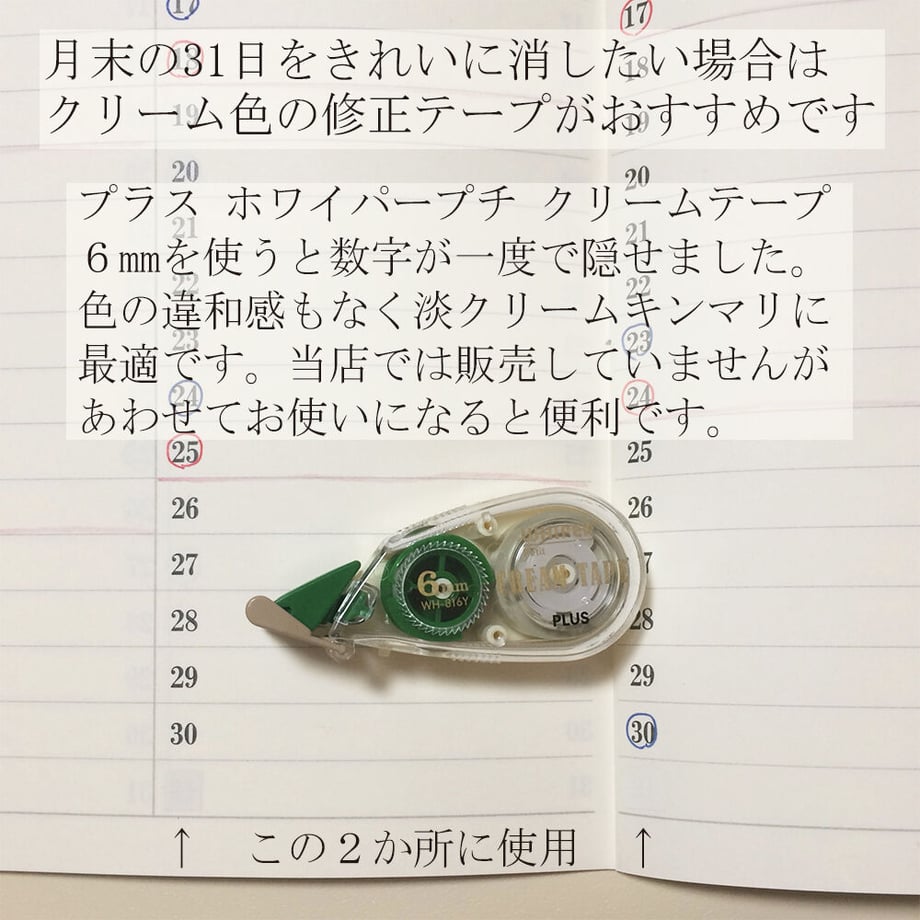 17
17
月末の31日をきれいに消したい場合は
18
18
クリーム色の修正テープがおすすめです
19
19
20
20
プラス ホワイパープチ クリームテープ
21
21
６㎜を使うと数字が一度で隠せました。
22
22
色の違和感もなく淡クリームキンマリに
23
23
最適です。当店では販売していませんが
24
24
あわせてお使いになると便利です。
25
25
26
26
27
28
28
29
29
30
30
6mm
WH-816Y
CREAM TAPE
PLUS
↑ この２か所に使用 ↑